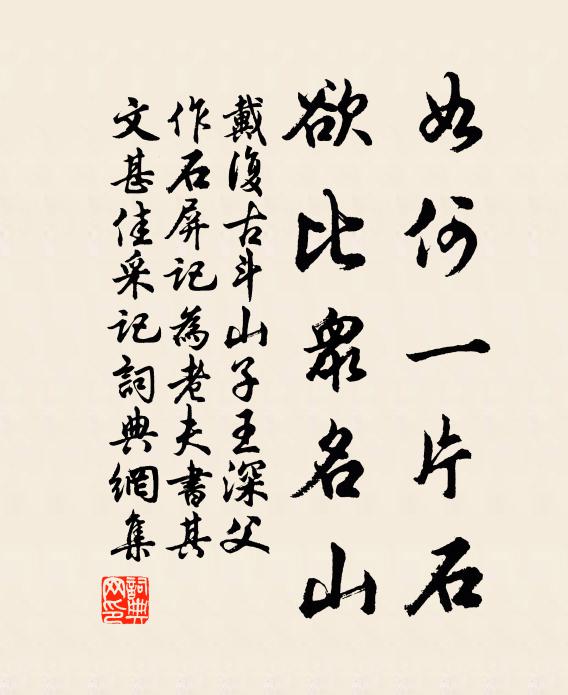 如何一片石
欲比衆名山
戴復古斗山子王深父
作石屏記為老夫書其
文甚佳采記詞典網集
詞典网印